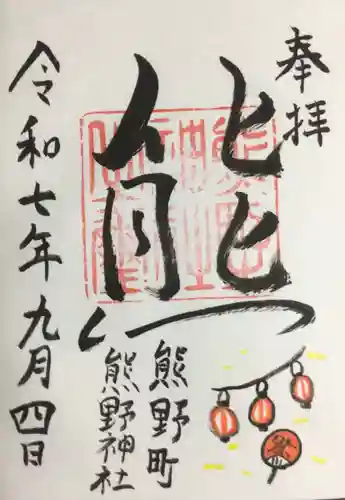 奉拝
熊
熊野町
熊野神社
令和七年九月四日